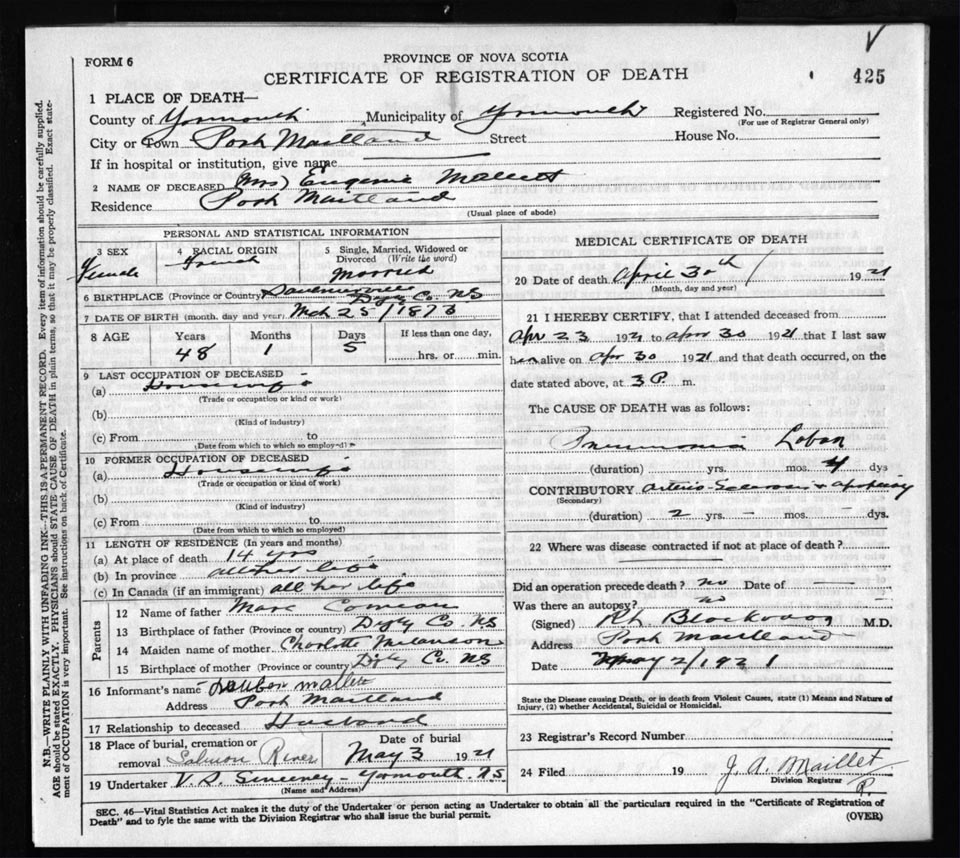 FORM 6
PROVINCE OF NOVA SCOTIA
CERTIFICATE OF REGISTRATION OF DEATH
425
1 PLACE OF DEATH—
County of Yarmouth Municipality of Yarmouth Registered No.
(For use of Registrar General only)
City or Town Port Maitland Street House No.
If in hospital or institution, give name
2 NAME OF DECEASED (Mrs) Eugenie Mallett
Residence Port Maitland
(Usual place of abode)
PERSONAL AND STATISTICAL INFORMATION
3 SEX 4 RACIAL ORIGIN 5 Single, Married, Widowed or
Divorced (Write the word)
Female French Married
6 BIRTHPLACE (Province or Country) Saulnierville
Digby Co. NS
7 DATE OF BIRTH (month, day and year) Mch 25/1873
8 AGE Years Months Days If less than one day,
48 1 5 hrs. or min.
9 LAST OCCUPATION OF DECEASED
(a) Housewife
(Trade or occupation or kind or work)
(b)
(Kind of industry)
(c) From to
(Date from which to which so employed)
10 FORMER OCCUPATION OF DECEASED
(a) Housewife
(Trade or occupation or kind of work)
(b)
(Kind of industry)
(c) From to
(Date from which to which so employed)
11 LENGTH OF RESIDENCE (In years and months)
(a) At place of death 14 yrs
(b) In province all her life
(c) In Canada (if an immigrant) all her life
Parents
12 Name of father Marc Comeau
13 Birthplace of father (Province or country) Digby Co. NS
14 Maiden name of mother Charlotte Melanson
15 Birthplace of mother (Province or country) Digby Co. NS
16 Informant's name mallett
Address Port Maitland
17 Relationship to deceased Husband
18 Place of burial, cremation or Date of burial
removal Salmon River May 3 1921
19 Undertaker V. S. Sweeney - Yarmouth, N.S.
(Name and Address)
MEDICAL CERTIFICATE OF DEATH
20 Date of death April 30th / 1921
(Month, day and year)
21 I HEREBY CERTIFY, that I attended deceased from
Apr 23 1921 to Apr 30 1921 that I last saw
her alive on Apr 30 1921 and that death occurred, on the
date stated above, at 3 P. m.
The CAUSE OF DEATH was as follows:
Pneumonia Lobar
(duration) yrs. mos. 4 dys
CONTRIBUTORY Arterio-Sclerosis & apoplexy
(Secondary)
(duration) 2 yrs. — mos. — dys.
22 Where was disease contracted if not at place of death?
Did an operation precede death? no Date of —
Was there an autopsy? no —
(Signed) M.D.
Address Port Maitland
Date May 2/1921
State the Disease causing Death, or in death from Violent Causes, state (1) Means and Nature of
Injury, (2) whether Accidental, Suicidal or Homicidal.
23 Registrar's Record Number
24 Filed 19 J. A. Maillet
Division Registrar
SEC. 46—Vital Statistics Act makes it the duty of the Undertaker or person acting as Undertaker to obtain all the particulars required in the "Certificate of Registration of
Death" and to fyle the same with the Division Registrar who shall issue the burial permit.
(OVER)
N.B.—WRITE PLAINLY, WITH UNFADING INK—THIS IS A PERMANENT RECORD. Every item of information should be carefully supplied.
AGE should be stated EXACTLY. PHYSICIANS should STATE CAUSE OF DEATH in plain terms, so that it may be properly classified. Exact state-
ment of OCCUPATION is very important. See instructions on back of Certificate.